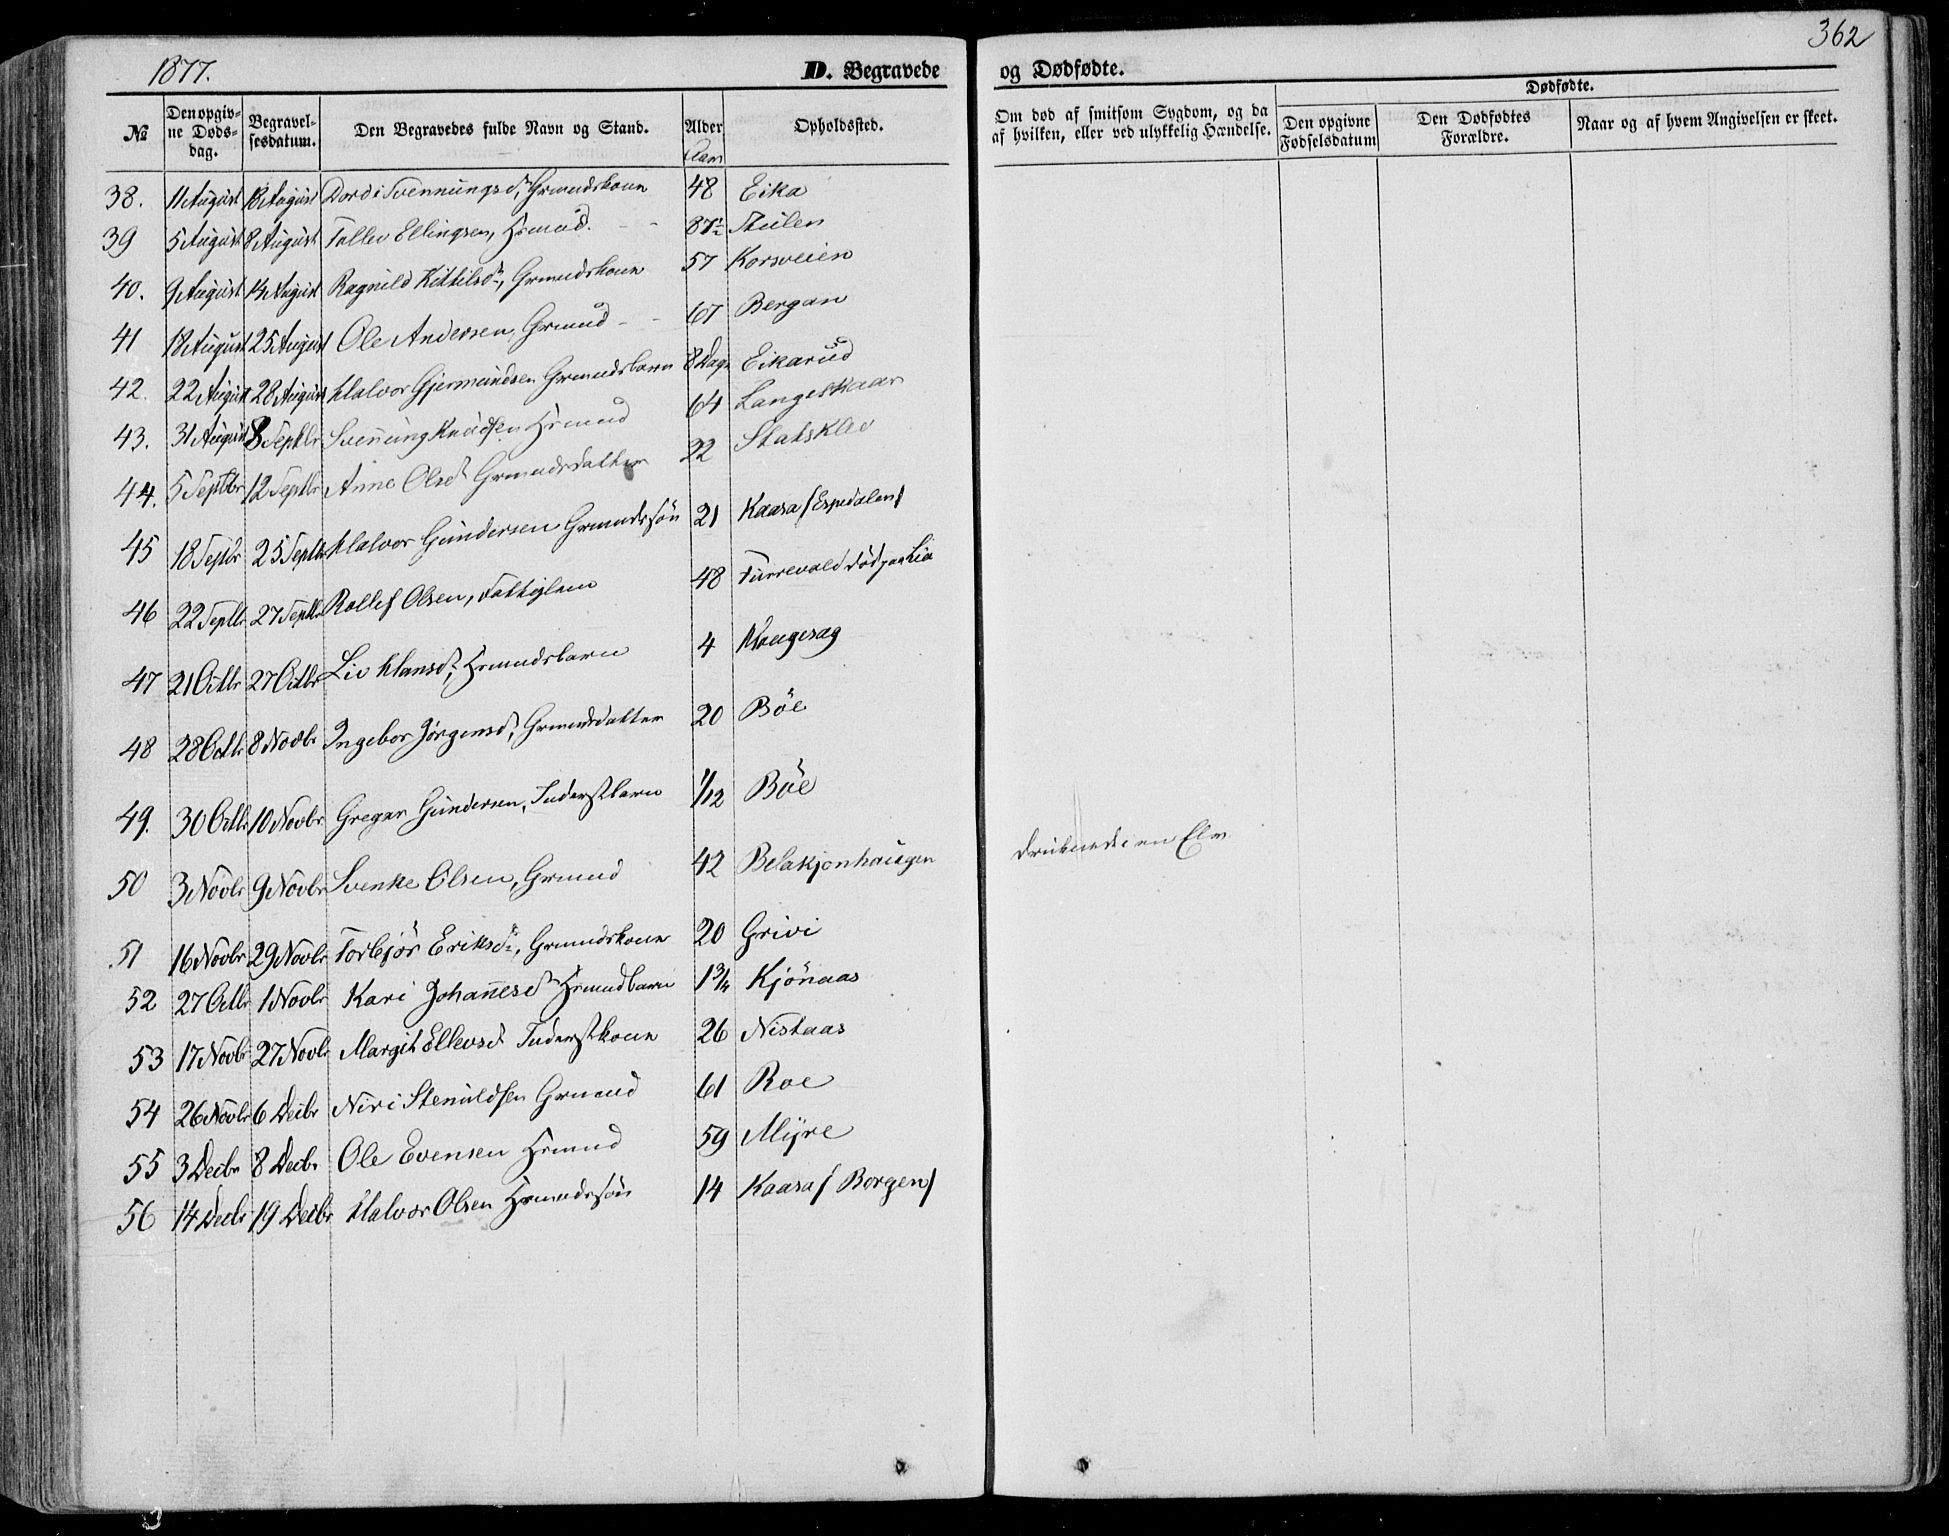 1877.
D. Begravede
og Dødfødte.
362
№
Den opgivne Dødsdag.
Begravelsesdatum.
Den Begravedes fulde Navn og Stand.
Alder
Aar
Opholdssted.
Om død af smitsom Sygdom, og da af hvilken, eller ved ulykkelig Hændelse.
Dødfødte.
Den opgivne Fødselsdatum
Den Dødfødtes Forældre.
Naar og af hvem Angivelsen er skeet.
38. 11 August August Dordi Svennungsd., Grmandskone 48 Eika
39 5 August 8 August Tallev Ellingsen, Hsmand. 87½
40. 9 August 14 August Ragnild Kittilsd., Grmandskone 57 Korsveien
41 18 August 25 August Ole Andersen, Grmand 67 Bergan
42. 22 August 28 August Halvor Gjermundsen Grmandsbarn 8 Dage Eikarud
43. 31 August 8 Septbr Svenung Knudsen Hsmand 64 Langeskaar
44. 5 Septbr 12 Septbr Anne Olsd Grmandsdatter 22
45 18 Septbr 25 Septbr Halvor Gundersen Grmandssøn 21 Kaasa / Espedalen /
46 22 Septbr 27 Septbr Rollef Olsen, Fattiglem 48 død paa Lia
47 21 Octbr 27 Octbr Liv Hansd., Hsmandsbarn 4 Haugesag
48 28 Octbr 8 Novbr Ingebor Jørgensd., Grmandsdatter 20 Böe
49. 30 Octbr 10 Novbr Gregar Gundersen, Inderstbarn 1/12 Böe
50 3 Novbr 9 Novbr Svenke Olsen, Grmand 42 Belakjonhaugen druknede i en Elv
51 16 Novbr 29 Novbr Torbjør Eriksd., Grmandskone 20 Grivi
52 27 Octbr 1 Novbr Kari Johannesd Hsmandbarn 1 3/4 Kjönaas
53 17 Novbr 27 Novbr Margit Ellevsd Inderstkone 26 Nistaas
54 26 Novbr 6 Decbr Niri Stenuldsen Grmand 61 Roe
55 3 Decbr 8 Decbr Ole Evensen Hsmand 59 Myre
56 14 Decbr 19 Decbr Halvor Olsen Hsmandssön 14 Kaasa / Borgen /